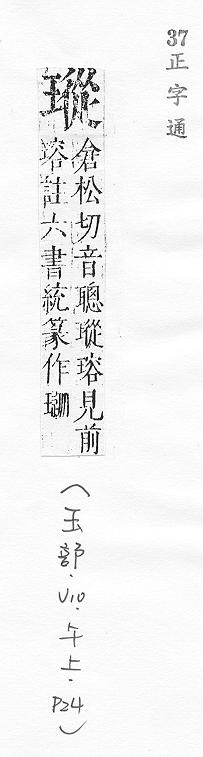 37正字通
瑽
倉松切音聰瑽瑢見前
瑢註六書統篆作
（玉部．V10．午上．P24）